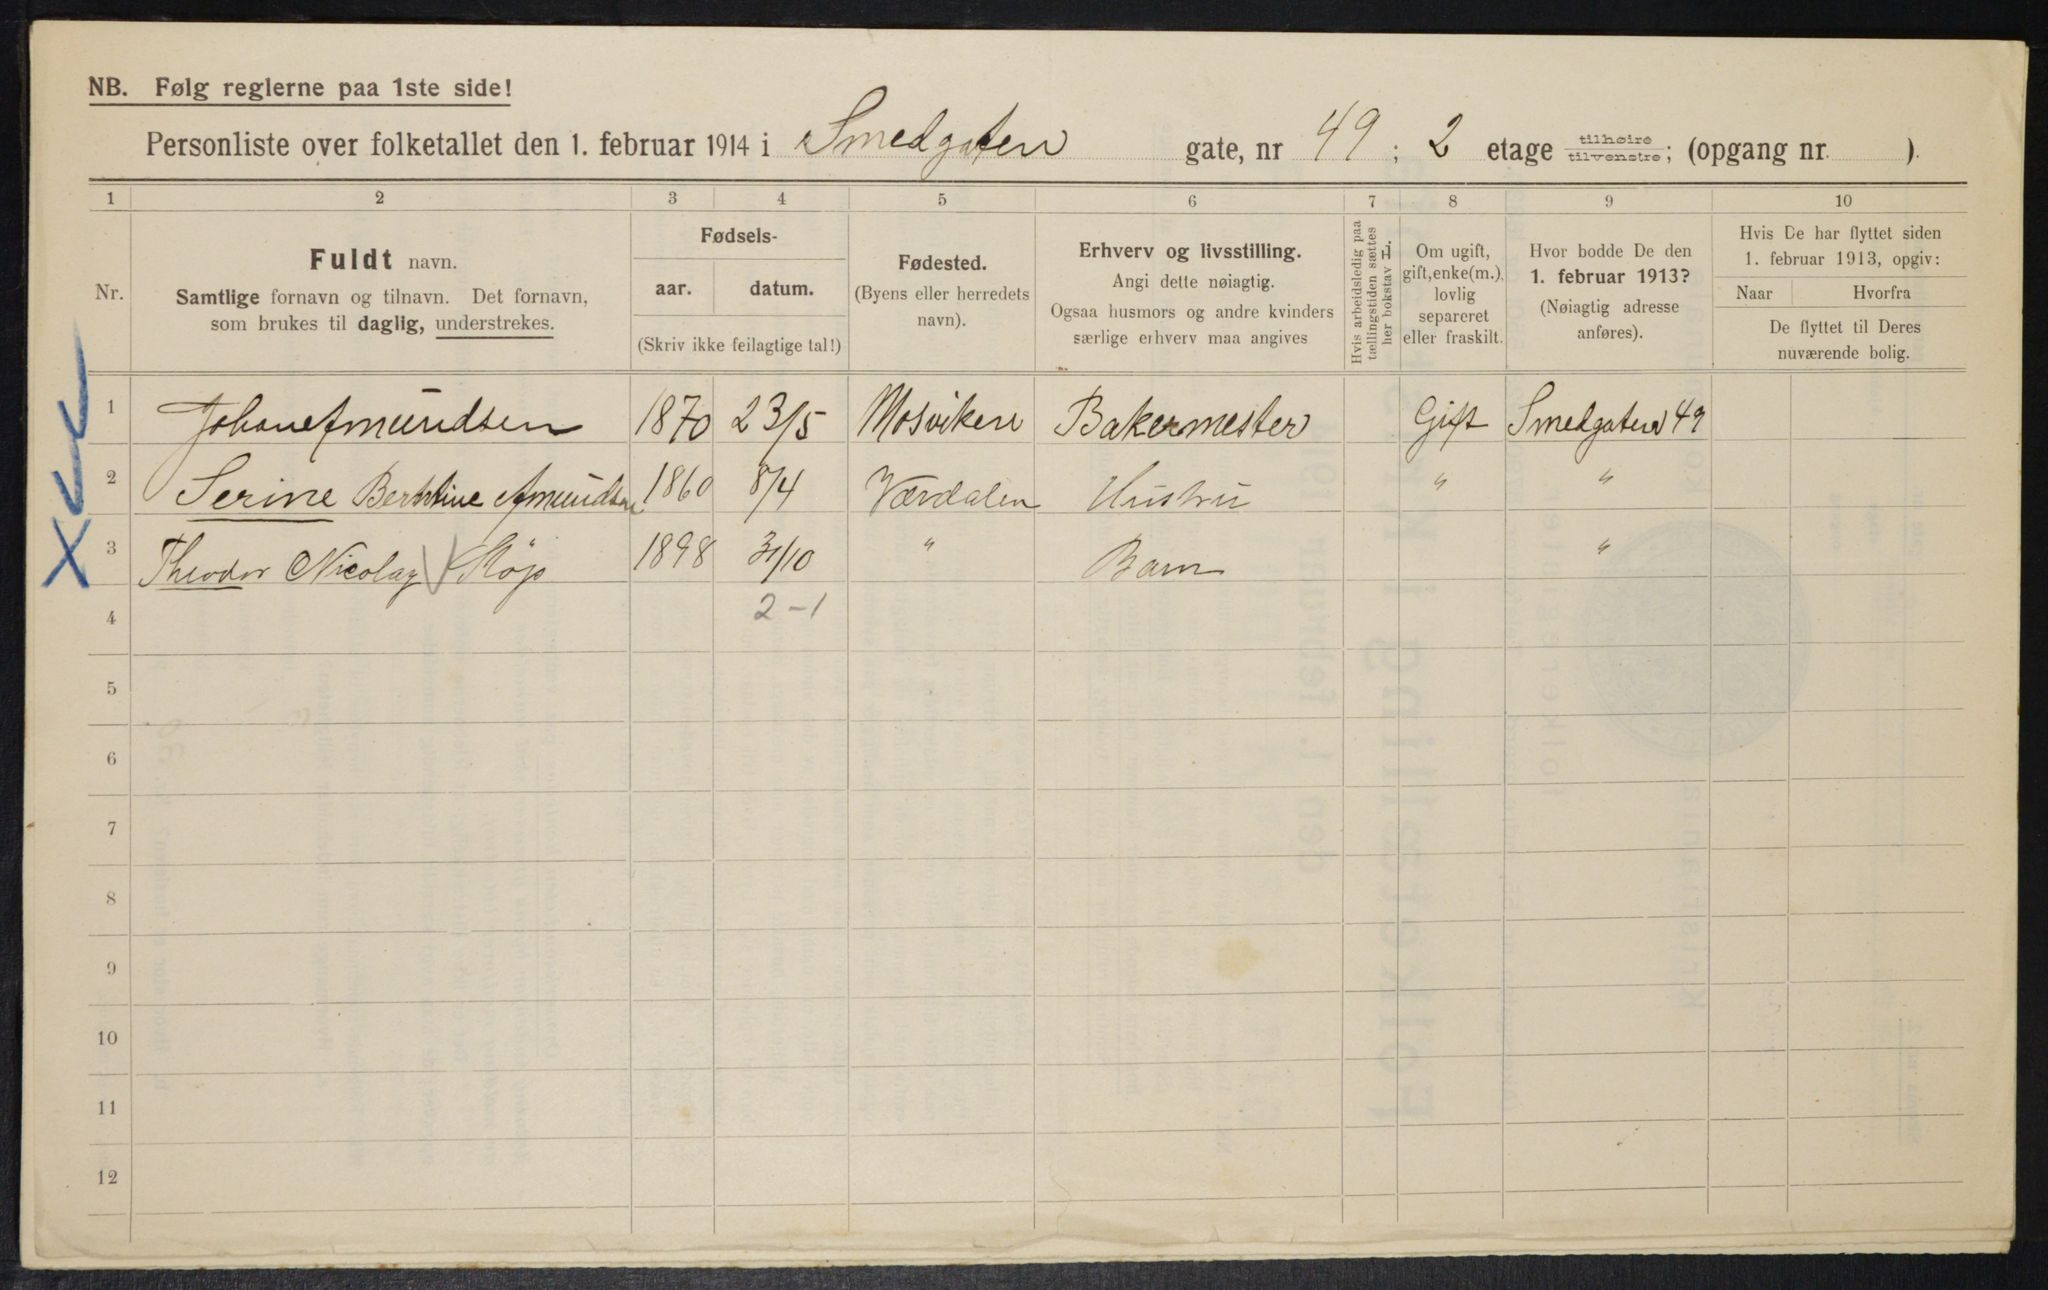 NB. Følg reglerne paa 1ste side!
Personliste over folketallet den 1. februar 1914 i Smedgaten gate, nr 49 ; 2 etage tilhøire tilvenstre; (opgang nr. ).
1 2 3 4 5 6 7 8 9 10
Nr.
Fuldt navn.
Samtlige fornavn og tilnavn. Det fornavn,
som brukes til daglig, understrekes.
Fødsels-
aar. datum.
(Skriv ikke feilagtige tal!)
Fødested.
(Byens eller herredets
navn).
Erhverv og livsstilling.
Angi dette nøiagtig.
Ogsaa husmors og andre kvinders
særlige erhverv maa angives
Hvis arbeidsledig paa
tællingstiden sættes
her bokstav
Om ugift,
gift, enke(m.),
lovlig
separeret
eller fraskilt.
Hvor bodde De den
1. februar 1913?
(Nøiagtig adresse
anføres).
Hvis De har flyttet siden
1. februar 1913, opgiv:
Naar Hvorfra
De flyttet til Deres
nuværende bolig.
1 Johan Amundsen 1870 23/5 Mosviken Bakermester Gift Smedgaten 49
2 Serine Berntine Amundsen 1860 8/4 Værdalen Hustru " "
3 Theodor Nicolay 1898 31/10 " Barn "
4 2-1
5
6
7
8
9
10
11
12